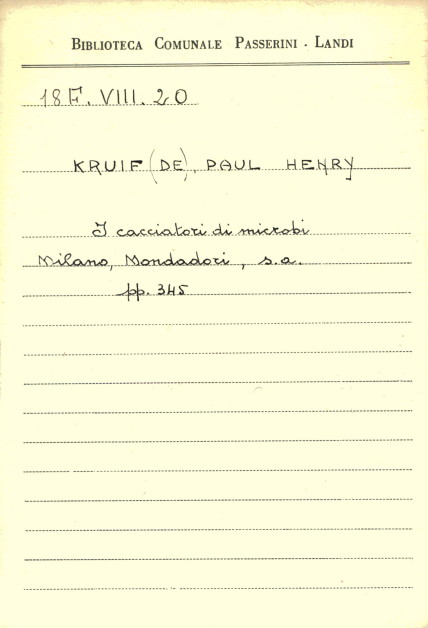 BIBLIOTECA COMUNALE PASSERINI - LANDI
18 F. VIII. 20
KRUIF (DE), PAUL HENRY
I cacciatori di microbi
Milano, Mondadori, s.a.
pp. 345